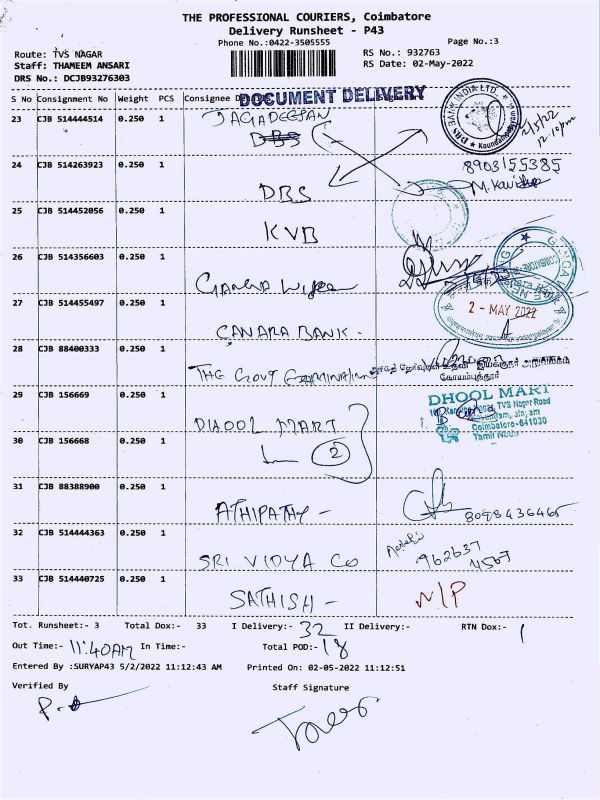 THE PROFESSIONAL COURIERS, Coimbatore
Delivery Runsheet - P43
Phone No.:0422-3505555
Page No.:3
Route: TVS NAGAR
RS No.: 932763
Staff: THAMEEM ANSARI
RS Date: 02-May-2022
DRS No.: DCJB93276303
S No Consignment No Weight PCS Consignee
DOCUMENT DELIVERY
23 CJB 514444514 0.250 1 JAGADEESAN
DBS
2/5/22
12.10pm
24 CJB 514263923 0.250 1 DBS
8903155385
25 CJB 514452056 0.250 1 KVB
26 CJB 514356603 0.250 1
27 CJB 514455497 0.250 1 CANARA BANK.
2 - MAY 2022
28 CJB 88400333 0.250 1 THE GOVT
கோயம்புத்தூர்
29 CJB 156669 0.250 1 DHOOL MART
DHOOL MART
TVS Nagar Road
Coimbatore-641030
Tamil Nadu
30 CJB 156668 0.250 1 2
31 CJB 88388900 0.250 1 ATHIPATHY -
8098436465
32 CJB 514444363 0.250 1 SRI VIDYA CO
962637
4567
33 CJB 514440725 0.250 1 SATHISH - N/P
Tot. Runsheet:- 3 Total Dox:- 33 I Delivery:- 32 II Delivery:- RTN Dox:- 1
Out Time:- 11:40AM In Time:- Total POD:- 18
Entered By :SURYAP43 5/2/2022 11:12:43 AM Printed On: 02-05-2022 11:12:51
Verified By Staff Signature